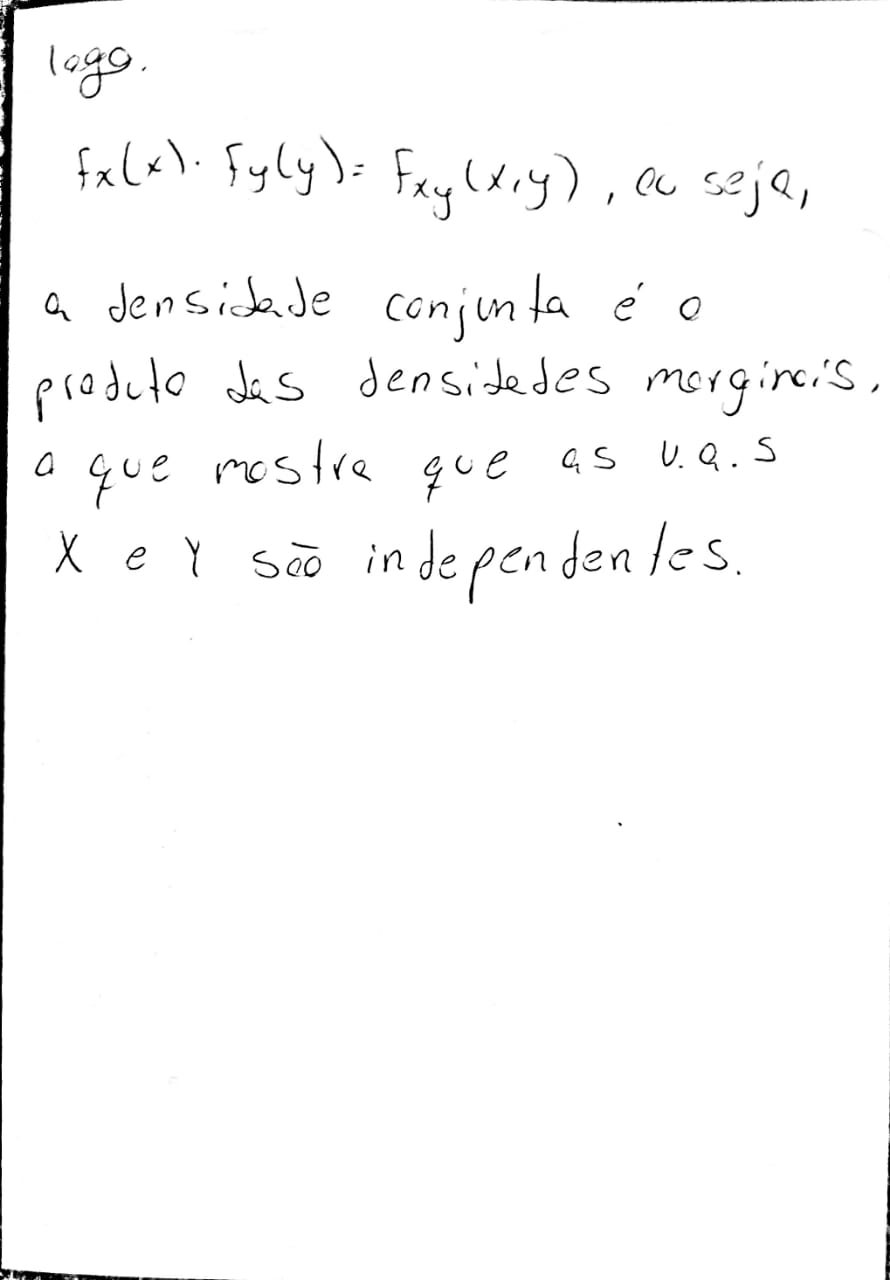 logo.
fx(x). fy(y)= fxy(x,y), ou seja,
a densidade conjunta é o
produto das densidades marginais,
o que mostra que as v.a.s
X e Y são independentes.